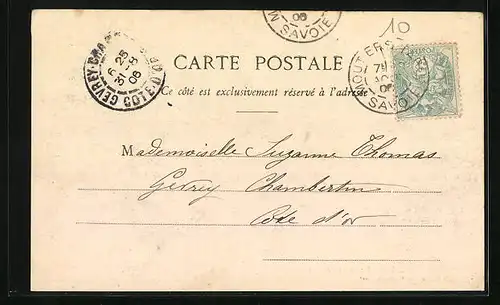 06
SAVOIE
10
CARTE POSTALE
Ce côté est exclusivement réservé à l'adresse
GEVREY-CHA
COTE-D'OR
6 25
31-8
06
MOUTIERS
SAVOIE
Mademoiselle Suzanne Thomas
Gevrey Chambertin
Côte d'or